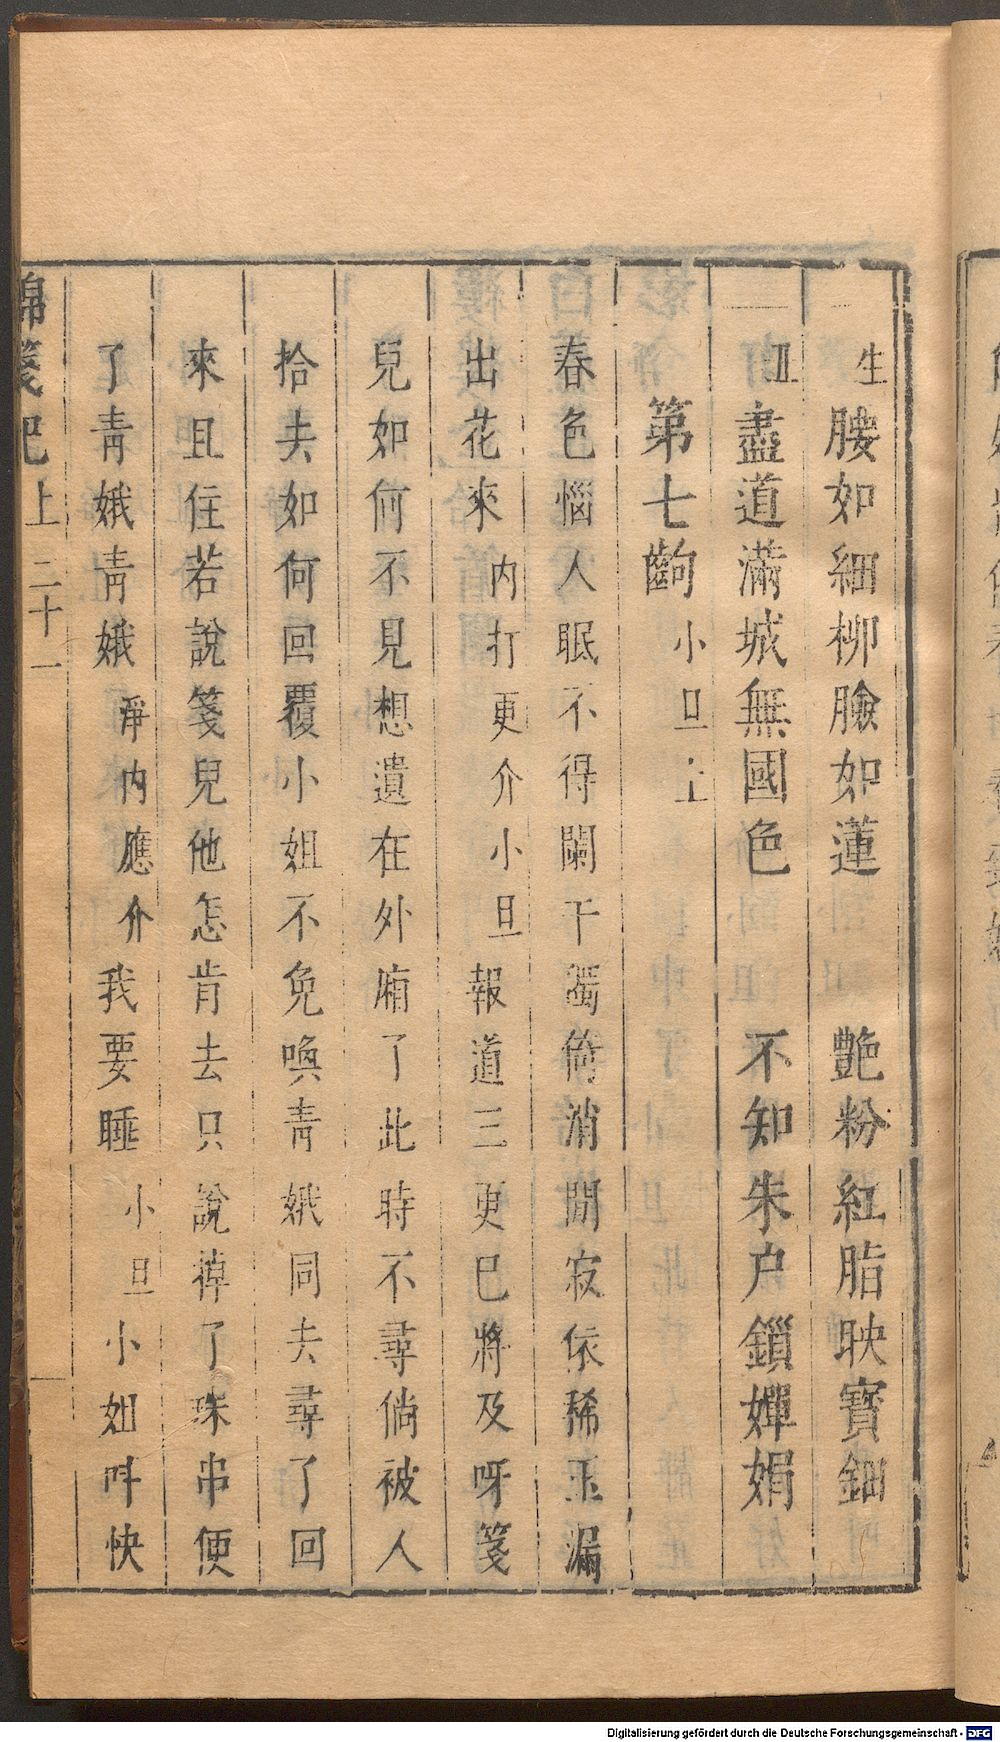 生 腰如細柳臉如蓮 艷粉紅脂映寳鈿
丑 盡道滿城無國色 不知朱户鎖嬋娟
第七齣 小旦上
春色惱人眠不得闌干獨倚消閒寂依稀玉漏
出花來 内打更介小旦 報道三更巳將及呀箋
兒如何不見想遺在外廂了此時不尋倘被人
拾去如何回覆小姐不免喚青娥同去尋了回
來且住若說箋兒他怎肯去只說褘了珠串便
了青娥青娥 淨内應介 我要睡 小旦 小姐呌快
錦箋記上 二十一
Digitalisierung gefördert durch die Deutsche Forschungsgemeinschaft - DFG